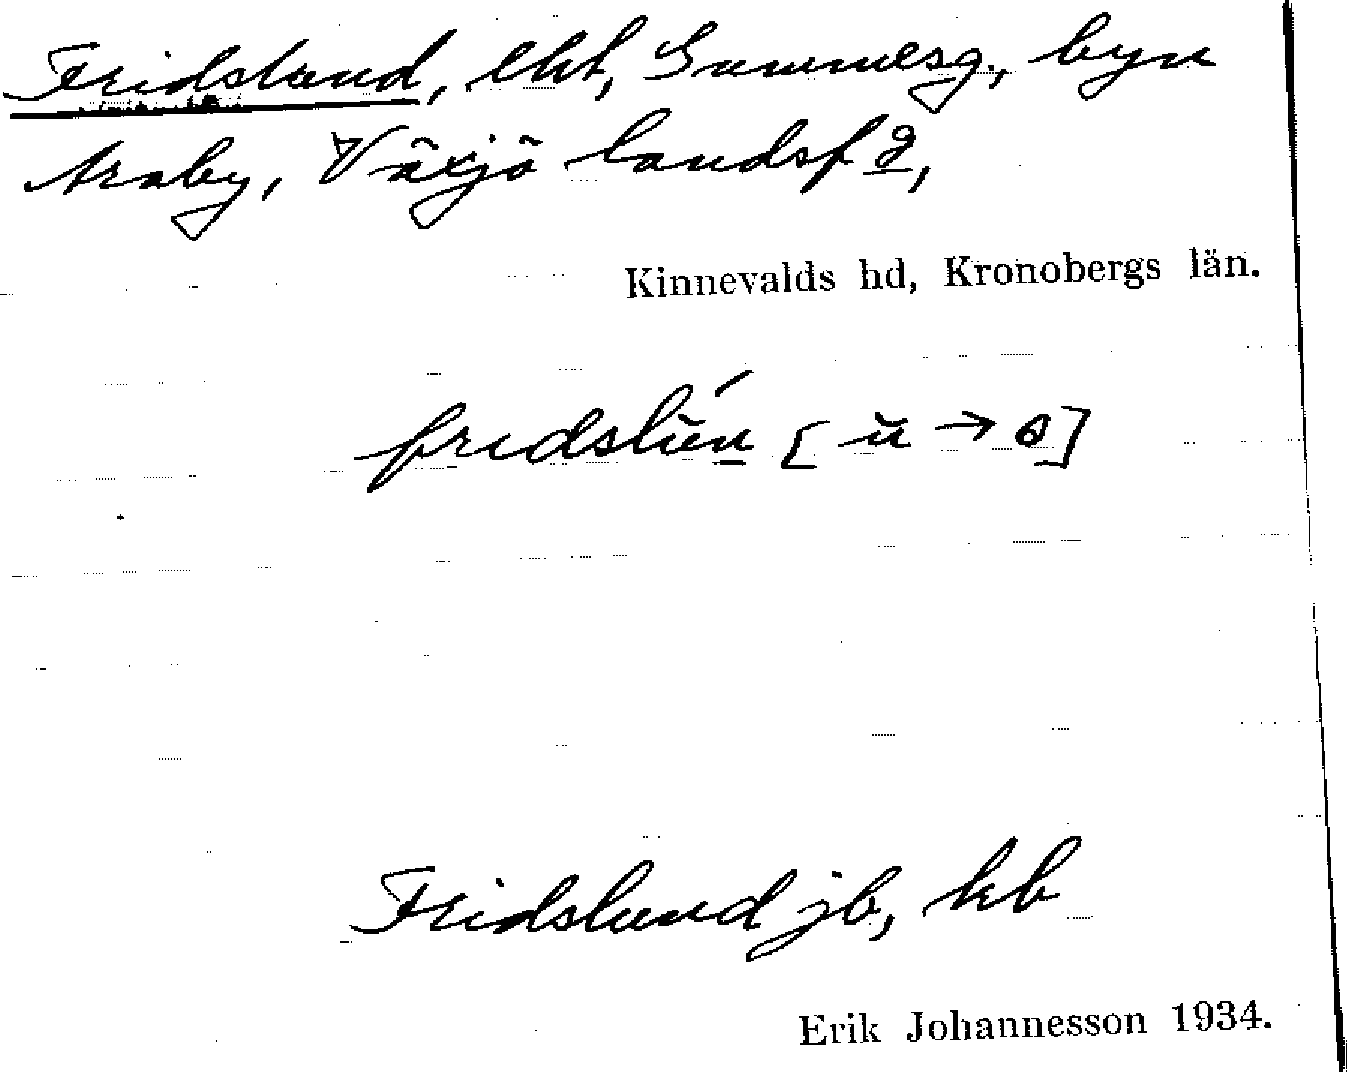 Fridslund, lht, Sammesg., byn
Araby, Växjö landsf 2,
Kinnevalds hd, Kronobergs län.
fridslŭń [ŭ → o]
Fridslund jb, kb
Erik Johannesson 1934.